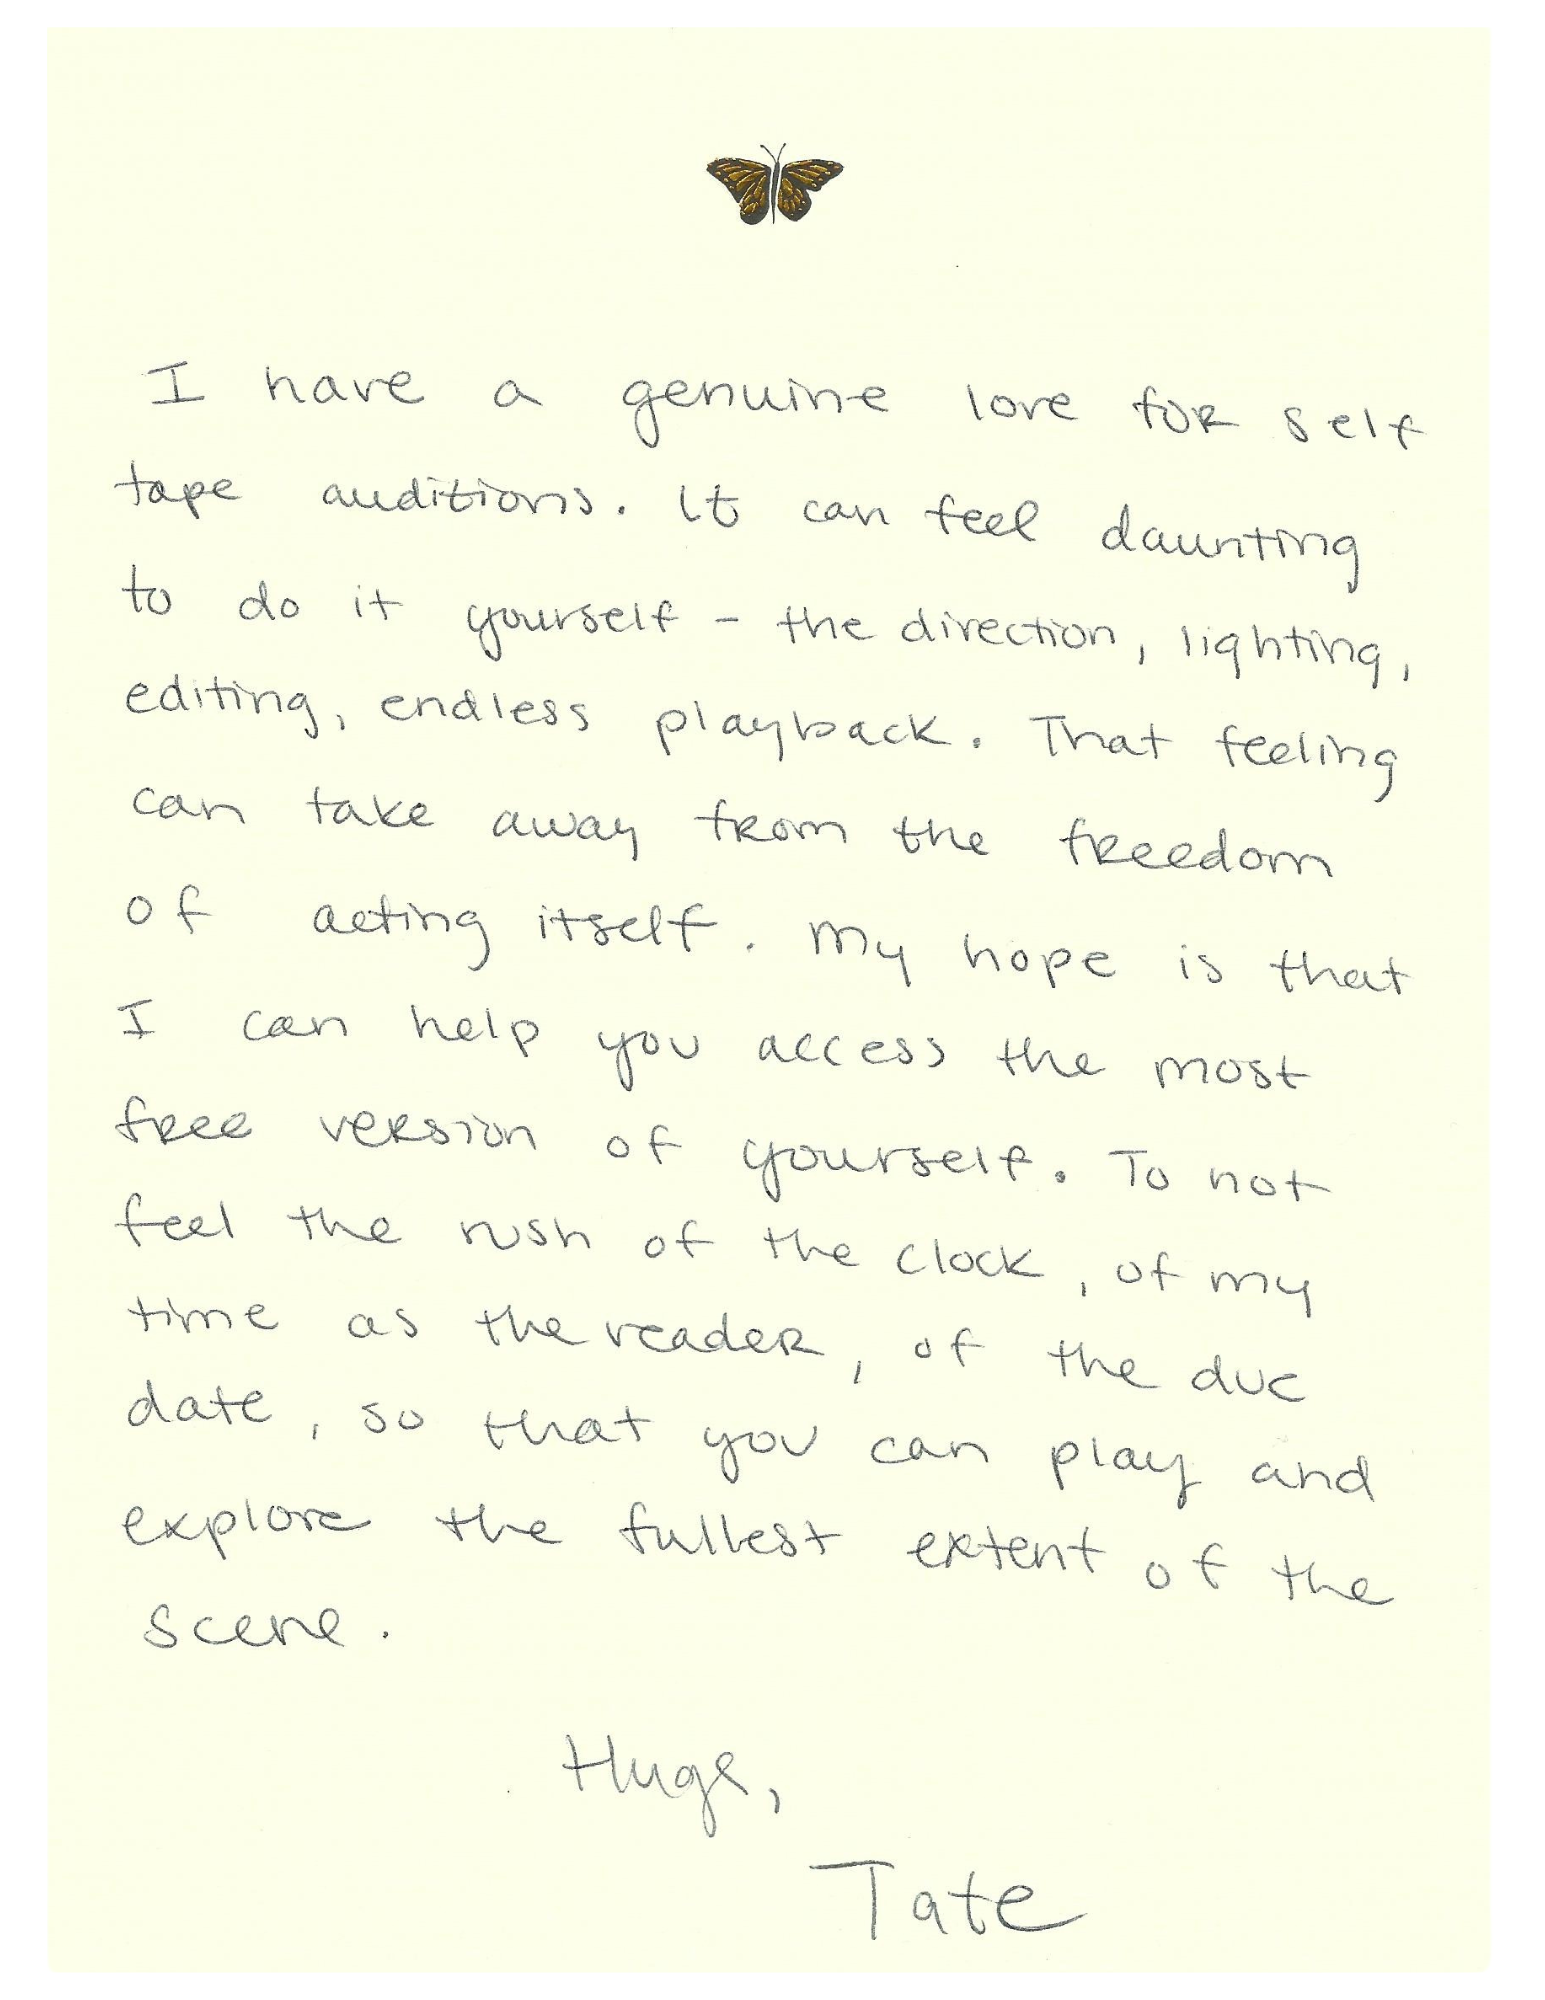 I have a genuine love for self
tape auditions. It can feel daunting
to do it yourself - the direction, lighting,
editing, endless playback. That feeling
can take away from the freedom
of acting itself. My hope is that
I can help you access the most
free version of yourself. To not
feel the rush of the clock, of my
time as the reader, of the due
date, so that you can play and
explore the fullest extent of the
scene.
Hugs,
Tate